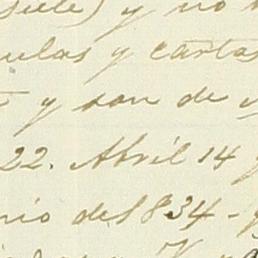 siete) y no
ulas y cartas
y son de
22. Abril 14 y
nio del 834 - y